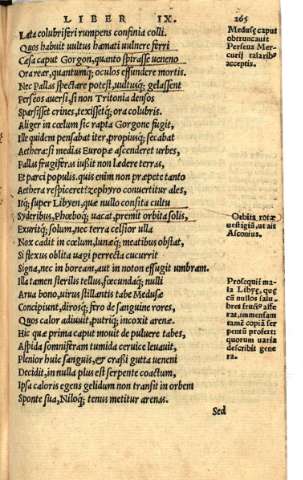 LIBER IX.
265
Lata colubriferi rumpens confinia colli.
Quos habuit uultus hamati uulnere ferri
Cæsa caput Gorgon, quanto spirasse ueneno
Ora rear, quantumq; oculos effundere mortis.
Nec Pallas spectare potest, uultusq; gelassent
Perseos auersi, si non Tritonia densos
Sparsisset crines, texissetq; ora colubris.
Aliger in cœlum sic rapta Gorgone fugit,
Ille quidem pensabat iter, propiusq; secabat
Aethera: si medias Europæ ascenderet urbes,
Pallas frugiferas iußit non lædere terras,
Et parci populis. quis enim non præpete tanto
Aethera respiceret? zephyro conuertitur ales,
Itq; super Libyen, quæ nullo consita cultu
Syderibus, Phœboq; uacat, premit orbita solis,
Exuritq; solum, nec terra celsior ulla
Nox cadit in cœlum, lunæq; meatibus obstat,
Si flexus oblita uagi perrecta cucurrit
Signa, nec in boream, aut in noton effugit umbram.
Illa tamen sterilis tellus, fœcundaq; nulli
Arua bono, uirus stillantis tabe Medusæ
Concipiunt, dirosq; fero de sanguine rores,
Quos calor adiuuit, putriq; incoxit arenæ.
Hic quæ prima caput mouit de puluere tabes,
Aspida somniferam tumida ceruice leuauit,
Plenior huic sanguis, & crassi gutta ueneni
Decidit, in nulla plus est serpente coactum,
Ipsa caloris egens gelidum non transit in orbem
Sponte sua, Niloq; tenus metitur arenas.
Sed
Medusæ caput
obtruncauit
Perseus Mer-
curij talaribus
acceptis.
Orbita rotæ
uestigiū, ut ait
Asconius.
Prosequit̄
Libyę,